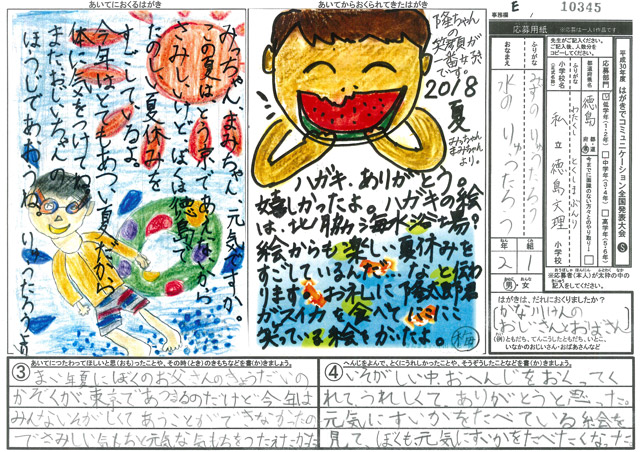 あいてにおくるはがき
みっちゃん、まみちゃん元気ですか。
この夏は、とう京であえないから
さみしいけど、ぼくは徳島で
たのしい夏休みを
すごしているよ。
今年はとてもあつい夏だから
体に気をつけてね。
またおじいちゃんの
ほうじであおうね。りゅうたろうより
あいてからおくられてきたはがき
隆ちゃんの
笑顔が
一番大好き
です。
2018
夏
みっちゃん
まみちゃん
より。
ハガキ、ありがとう。
嬉しかったよ。ハガキの絵
は、北の脇海水浴場?
絵からも楽しい夏休みを
すごしているんだなと伝わ
ります。お礼に隆太郎君
がスイカを食べてにこにこ
笑っている絵をかいたよ。
事務欄
E
10345
応募用紙
※応募は一人1作品です
先生がご記入ください。
ご記入後、人数分を
コピーしてください。
平成30年度 はがきでコミュニケーション全国発表大会 S
応募部門
低学年(1・2年)
中学年(3・4年)
高学年(5・6年)
都道府県名
徳島
都
道
府
県
ふりがな
小学校名
(正式名称)
私立徳島文理
小学校
ふりがな
おなまえ
水の りゅうたろう
年
2
組
1
男・女
※応募者(本人)が太枠の中の記入をしてください。
はがきは、だれにおくりましたか?
かな川けんの
おじさんとおばさん
(例)ともだち、てんこうしたともだち、いとこ、
いなかのおじいさん・おばあさんなど
③
あいてにつたわってほしいと思(おも)ったことや、その時(とき)のきもちなどを書(か)きましょう。
まい年夏にぼくのお父さんのきょうだいの
かぞくが、東京であつまるのだけど今年は
みんないそがしくてあうことができなかったの
でさみしい気もちと元気な気もちをつたえたかった
④
へんじをよんで、とくにうれしかったことや、そうぞうしたことなどを書(か)きましょう。
いそがしい中おへんじをおくってく
れて、うれしくて、ありがとうと思った。
元気にすいかをたべている絵を
見て、ぼくも元気にすいかをたべたくなった